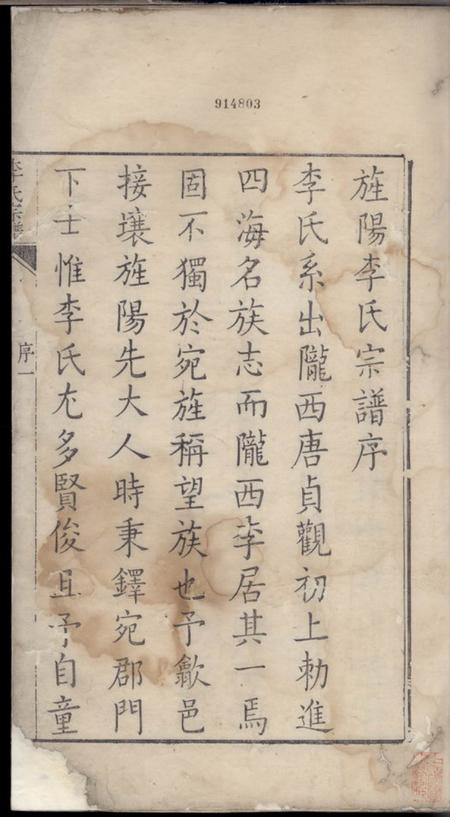 914803
旌陽李氏宗譜序
李氏系出隴西唐貞觀初上勅進
四海名族志而隴西李居其一焉
固不獨於宛旌稱望族也予歙邑
接壤旌陽先大人時秉鐸宛郡門
下士惟李氏尤多賢俊且予自童
李氏宗譜
序一